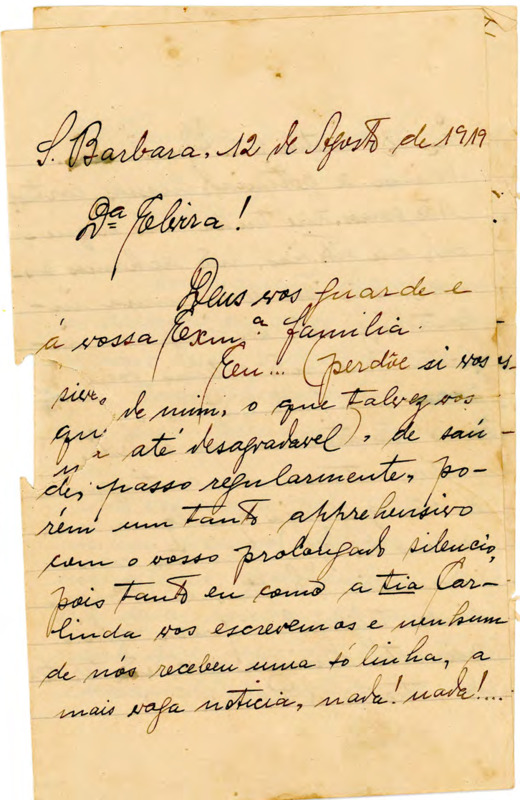 S. Barbara, 12 de Agosto de 1919
Dª Elvira!
Deus vos guarde e
á vossa Exm.ª familia.
Eu... (perdõe si vos es-
de mim, o que talvez vos
até desagradavel), de saú-
de, passo regularmente, po-
rém um tanto apprehensivo
com o vosso prolongado silencio,
pois tanto eu como a tia Car-
linda vos escrevemos e nenhum
de nós recebeu uma só linha, a
mais vaga noticia, nada! nada!...